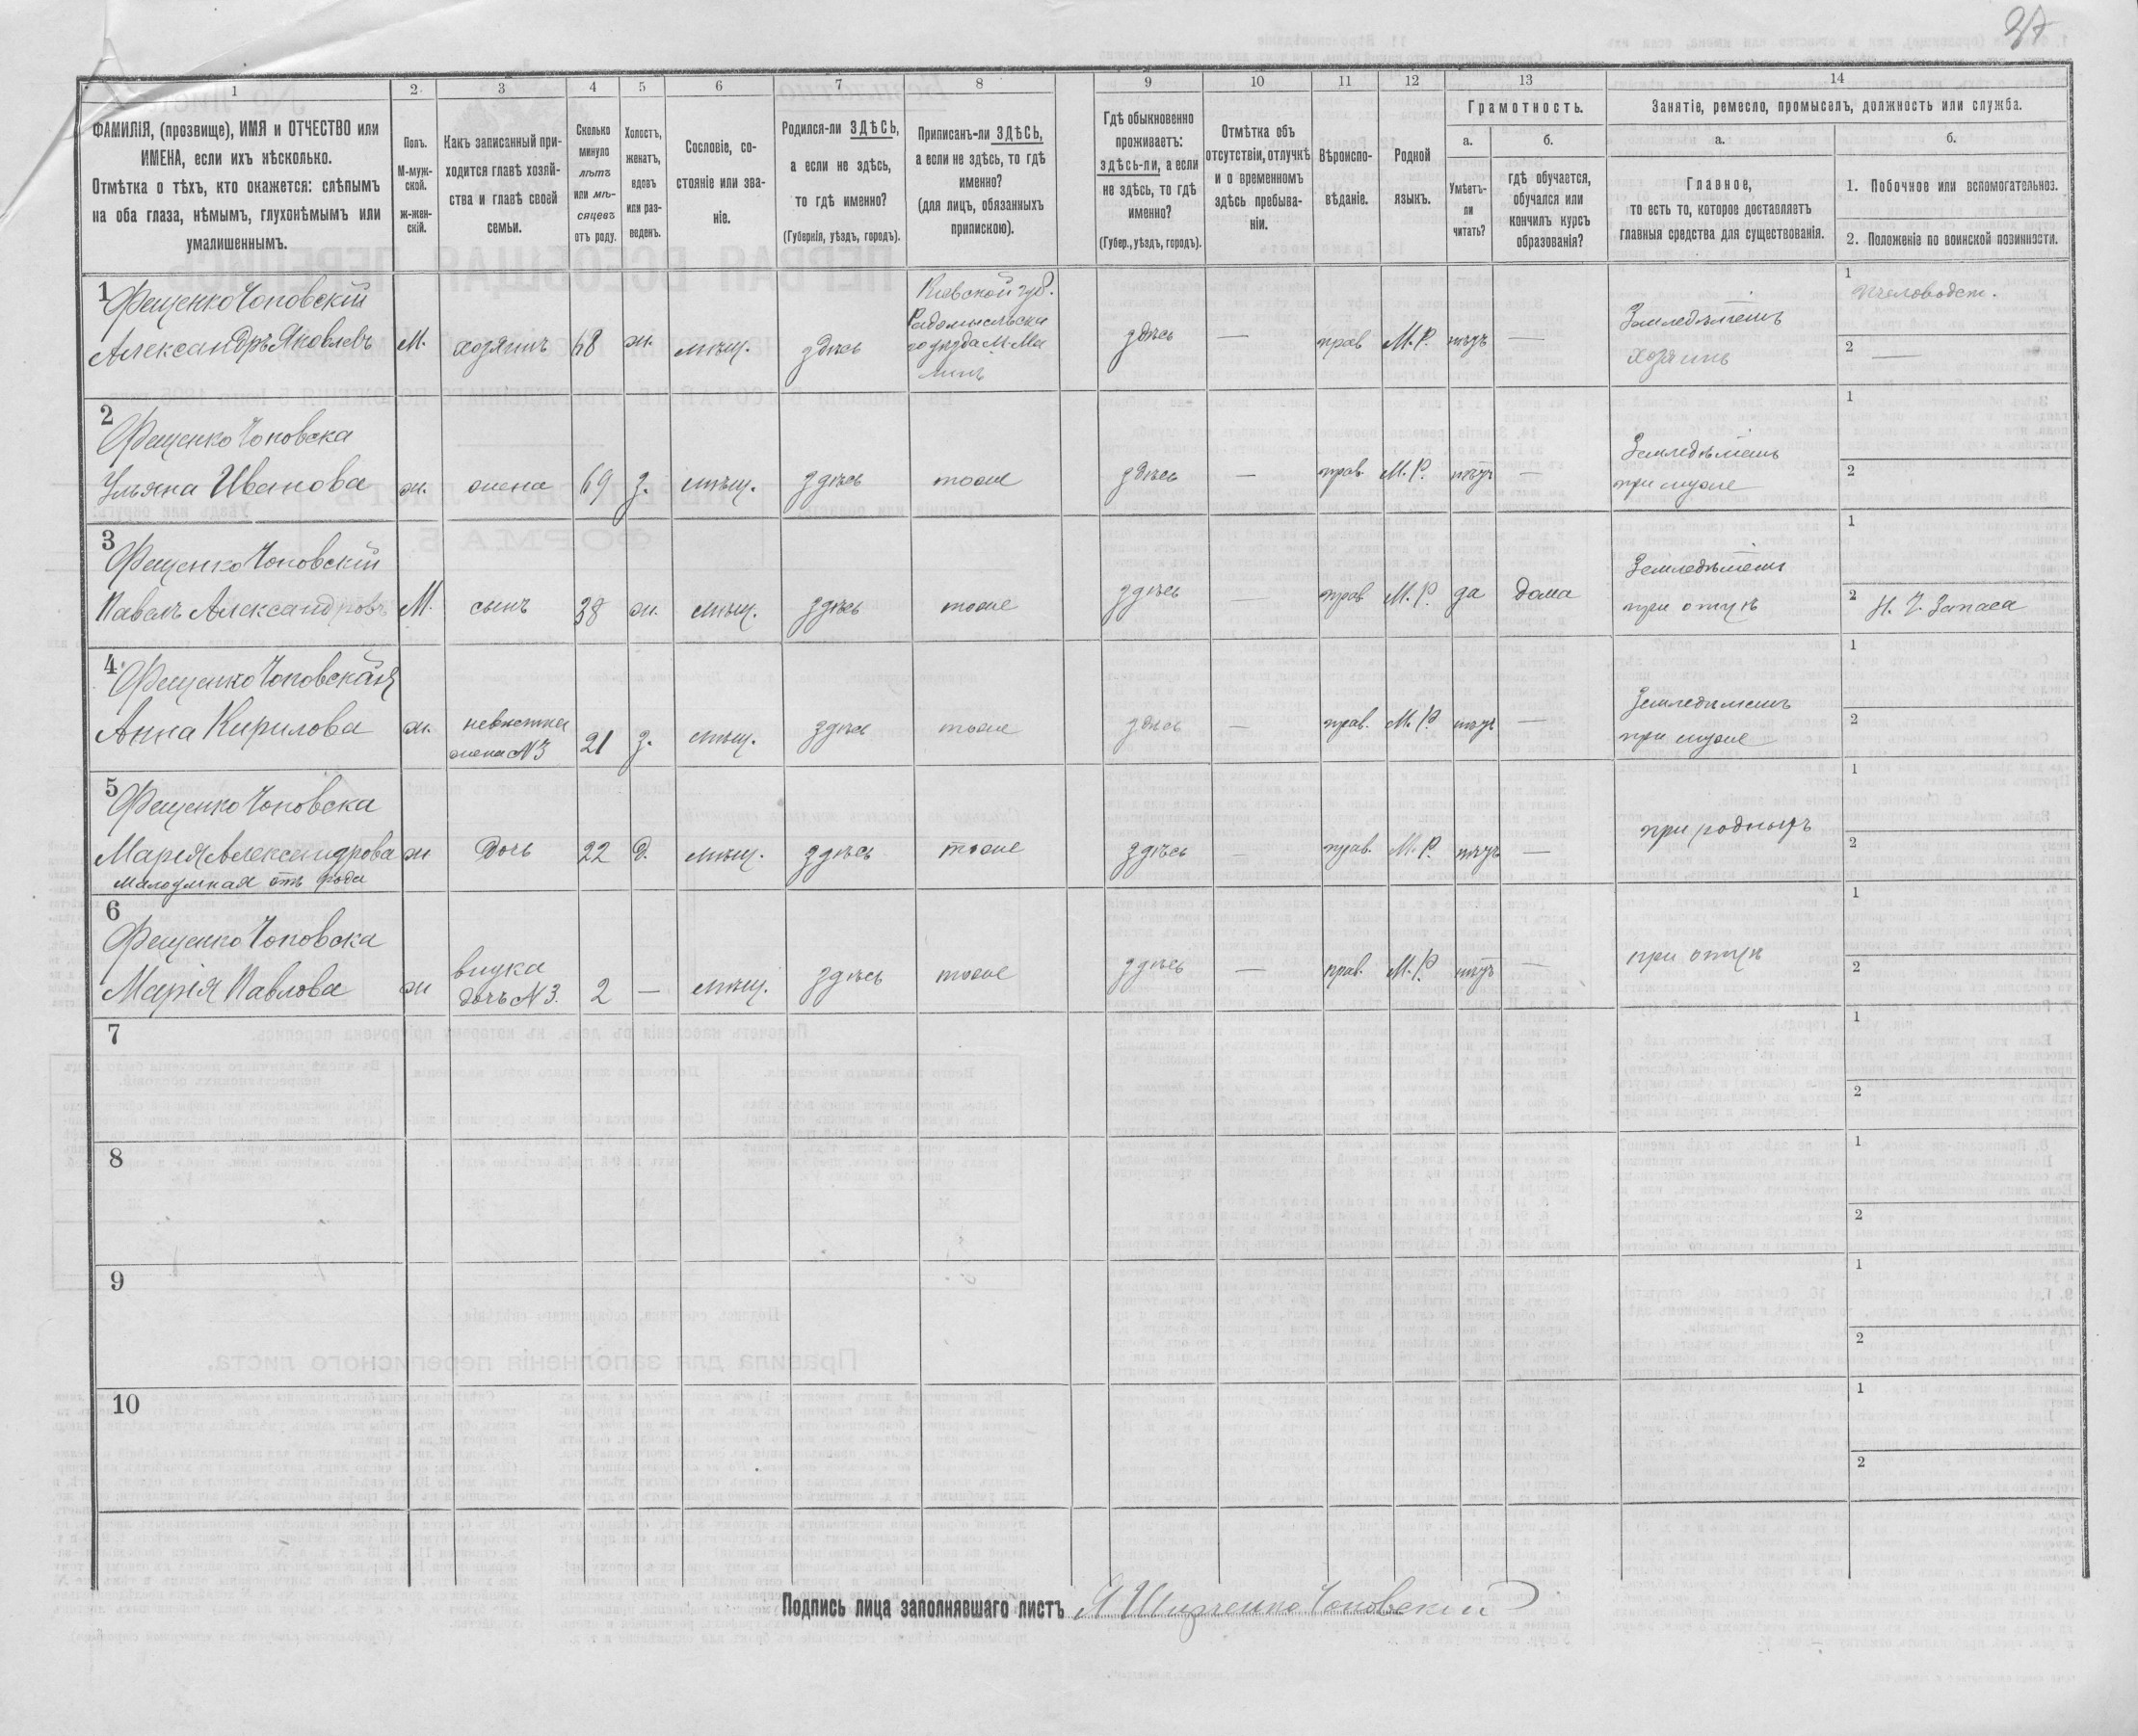 37
1
2
3
4
5
6
7
8
9
10
11
12
13
14
ФАМИЛІЯ, (прозвище), ИМЯ и ОТЧЕСТВО или
ИМЕНА, если ихъ нѣсколько.
Отмѣтка о тѣхъ, кто окажется: слѣпымъ
на оба глаза, нѣмымъ, глухонѣмымъ или
умалишеннымъ.
Полъ.
М-муж-
ской.
ж-жен-
скій.
Какъ записанный при-
ходится главѣ хозяй-
ства и главѣ своей
семьи.
Сколько
минуло
лѣтъ
или мѣ-
сяцевъ
отъ роду.
Холостъ,
женатъ,
вдовъ
или раз-
веденъ.
Сословіе, со-
стояніе или зва-
ніе.
Родился-ли ЗДѢСЬ,
а если не здѣсь,
то гдѣ именно?
(Губернія, уѣздъ, городъ).
Приписанъ-ли ЗДѢСЬ,
а если не здѣсь, то гдѣ
именно?
(для лицъ, обязанныхъ
припискою).
Гдѣ обыкновенно
проживаетъ:
здѣсь-ли, а если
не здѣсь, то гдѣ
именно?
(Губер., уѣздъ, городъ).
Отмѣтка объ
отсутствіи, отлучкѣ
и о временномъ
здѣсь пребыва-
ніи.
Вѣроиспо-
вѣданіе.
Родной
языкъ.
Грамотность.
а.
б.
Умѣетъ-
ли
читать?
гдѣ обучается,
обучался или
кончилъ курсъ
образованія?
Занятіе, ремесло, промыселъ, должность или служба.
а.
б.
Главное,
то есть то, которое доставляетъ
главныя средства для существованія.
1. Побочное или вспомогательное.
2. Положеніе по воинской повинности.
1
Фещенко Чоповскій
Александръ Яковлевъ
М.
хозяинъ
68
ж.
мѣщ.
здѣсь
Кіевской губ.
Радомысльска
го уѣзда М. Ма
линъ
здѣсь
—
прав
М. Р.
нѣтъ
—
Земледѣлецъ
хозяинъ
1
пчеловодст.
2
—
2
Фещенко Чоповска
Ульяна Иванова
ж.
жена
69
з.
мѣщ.
здѣсь
тоже
здѣсь
—
прав.
М. Р.
нѣтъ
—
Земледѣлецъ
при мужѣ
1
2
3
Фещенко Чоповскій
Павелъ Александровъ
М.
сынъ
38
ж.
мѣщ.
здѣсь
тоже
здѣсь
—
прав
М. Р.
да
дома
Земледѣлецъ
при отцѣ
1
2
Н. Ч. Запаса
4
Фещенко Чоповская
Анна Кирилова
ж.
невѣстка
жена №3
21
з.
мѣщ.
здѣсь
тоже
здѣсь
—
прав.
М. Р.
нѣтъ
—
Земледѣлецъ
при мужѣ
1
2
5
Фещенко Чоповска
Марія Александрова
малоумная отъ рода
ж
дочь
22
д.
мѣщ.
здѣсь
тоже
здѣсь
—
прав.
М. Р.
нѣтъ
—
при родныхъ
1
2
6
Фещенко Чоповска
Марія Павлова
ж
внучка
дочь №3.
2
—
мѣщ.
здѣсь
тоже
здѣсь
—
прав.
М. Р.
нѣтъ
—
при отцѣ
1
2
7
1
2
8
1
2
9
1
2
10
1
2
Подпись лица заполнявшаго листъ
Чоповскій